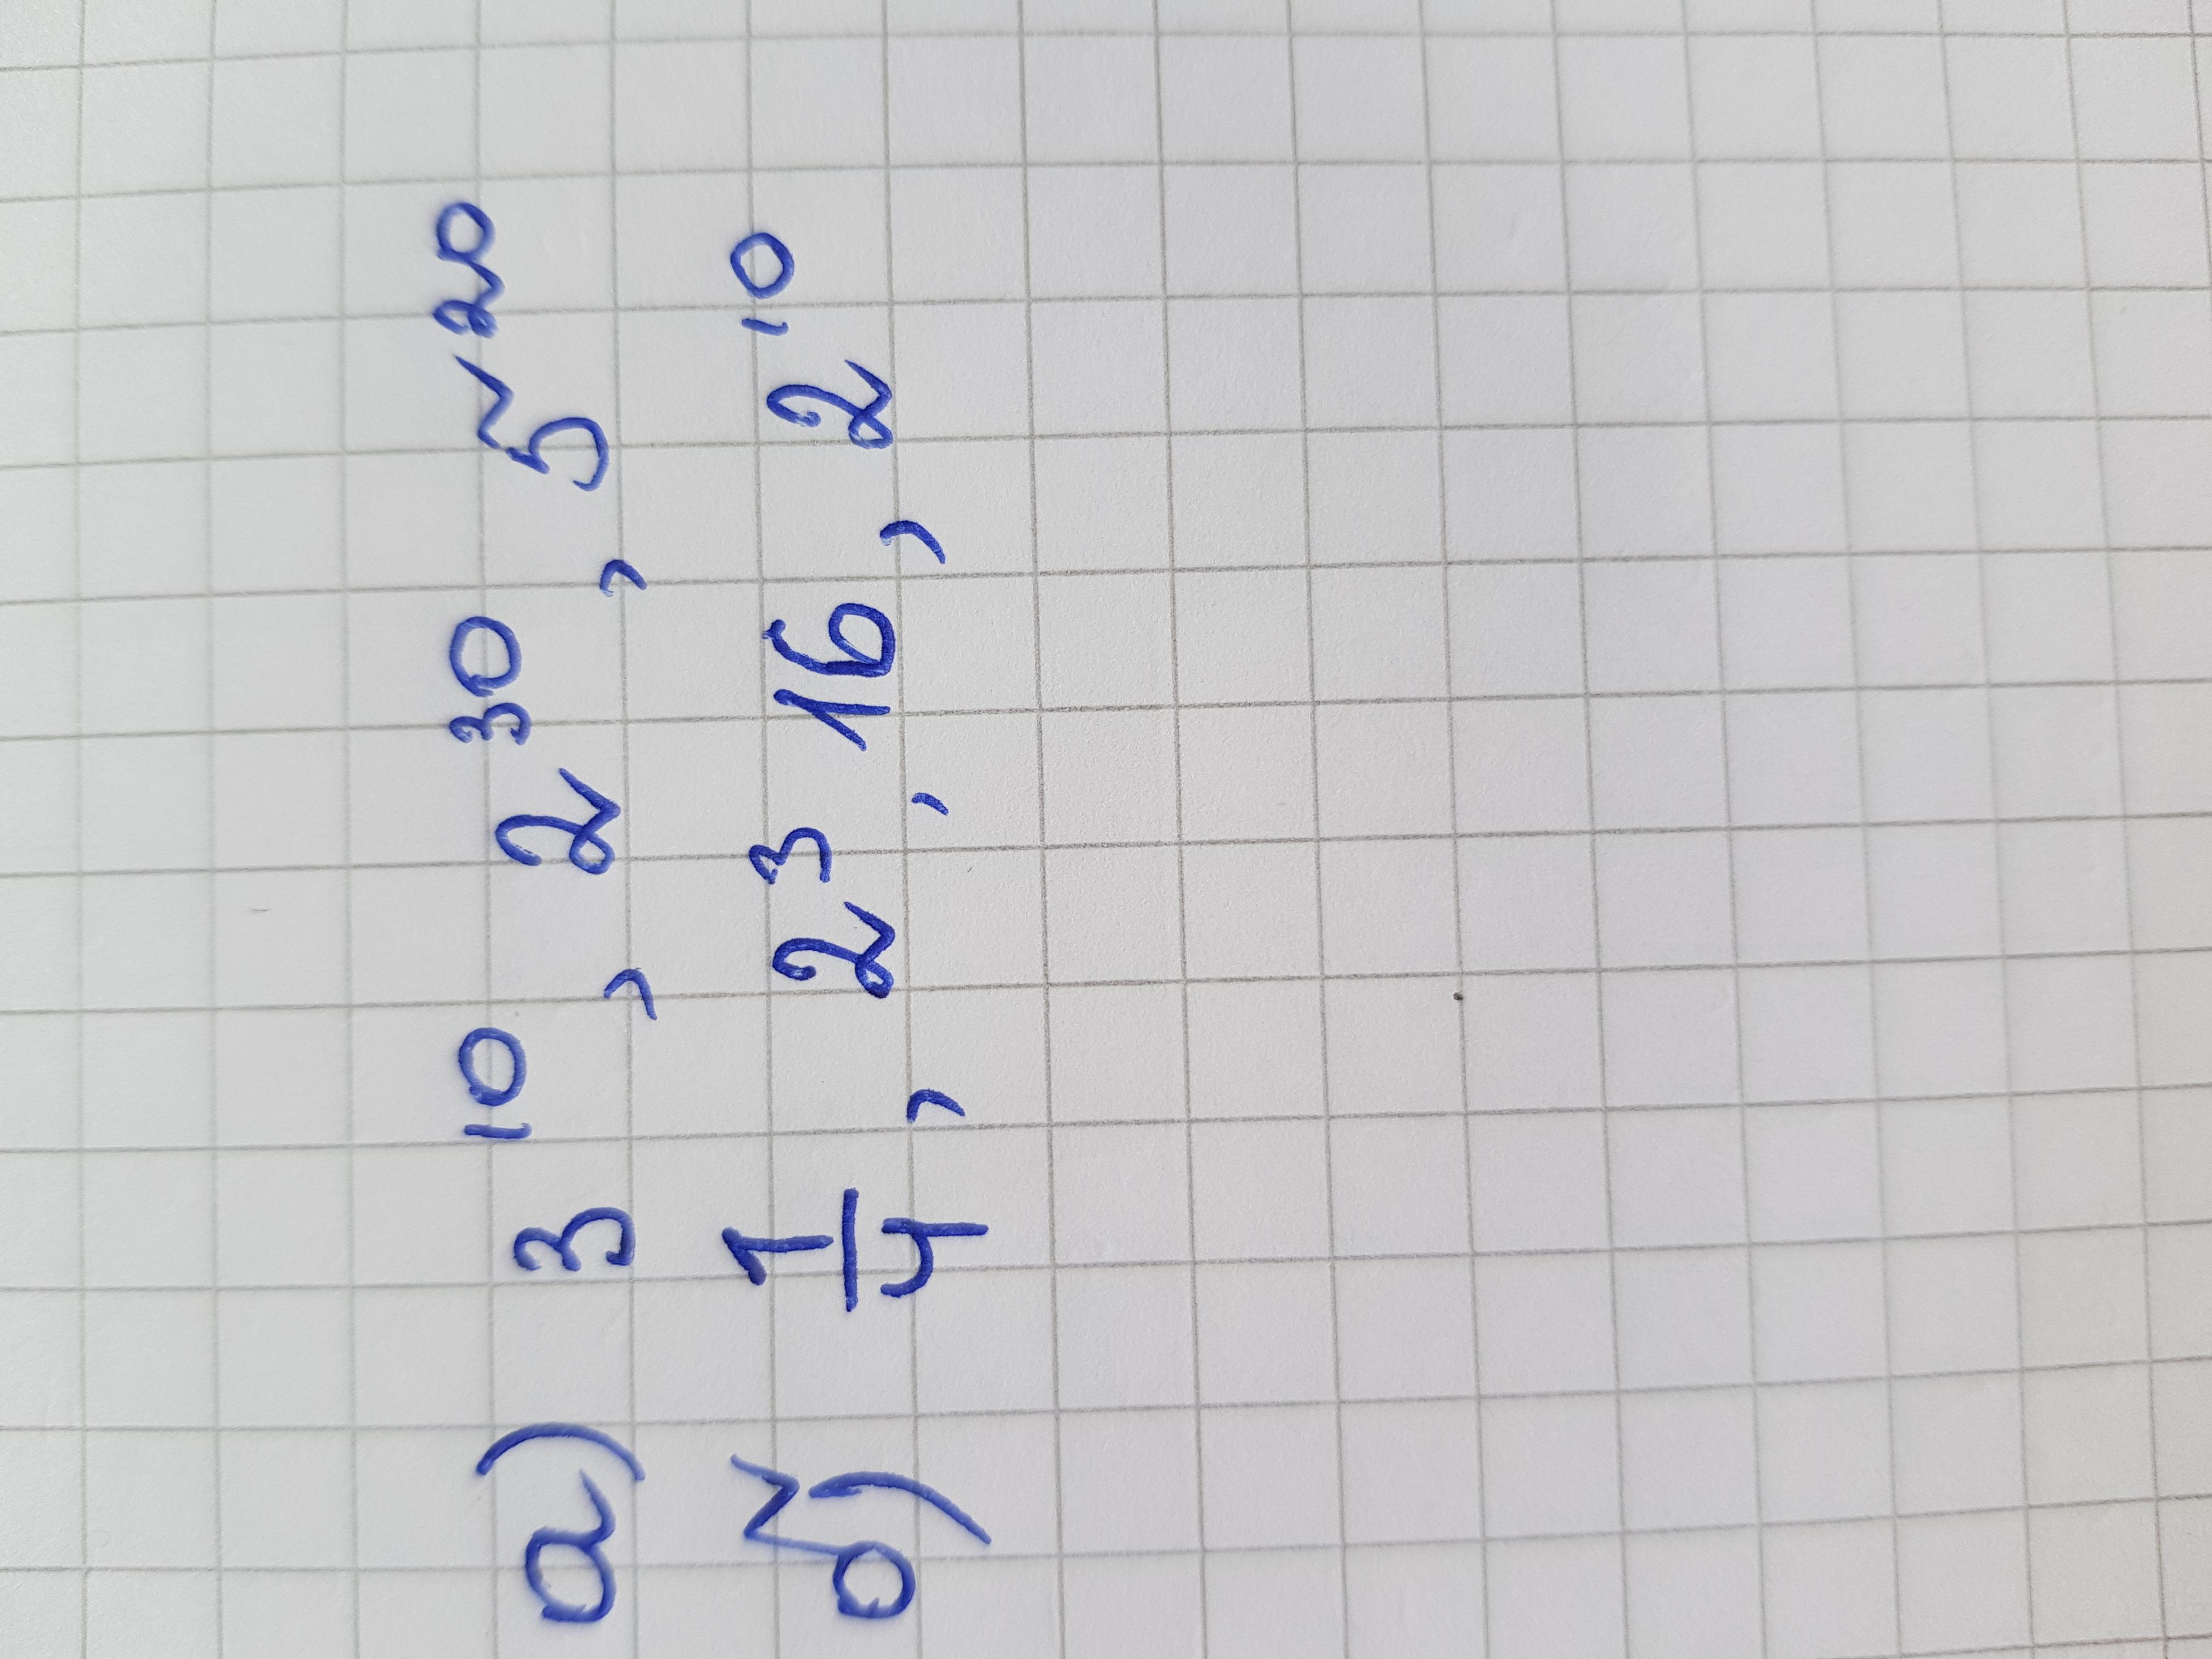 а) 3¹⁰, 2³⁰, 5²⁰
б) 1/4, 2³, 16, 2¹⁰